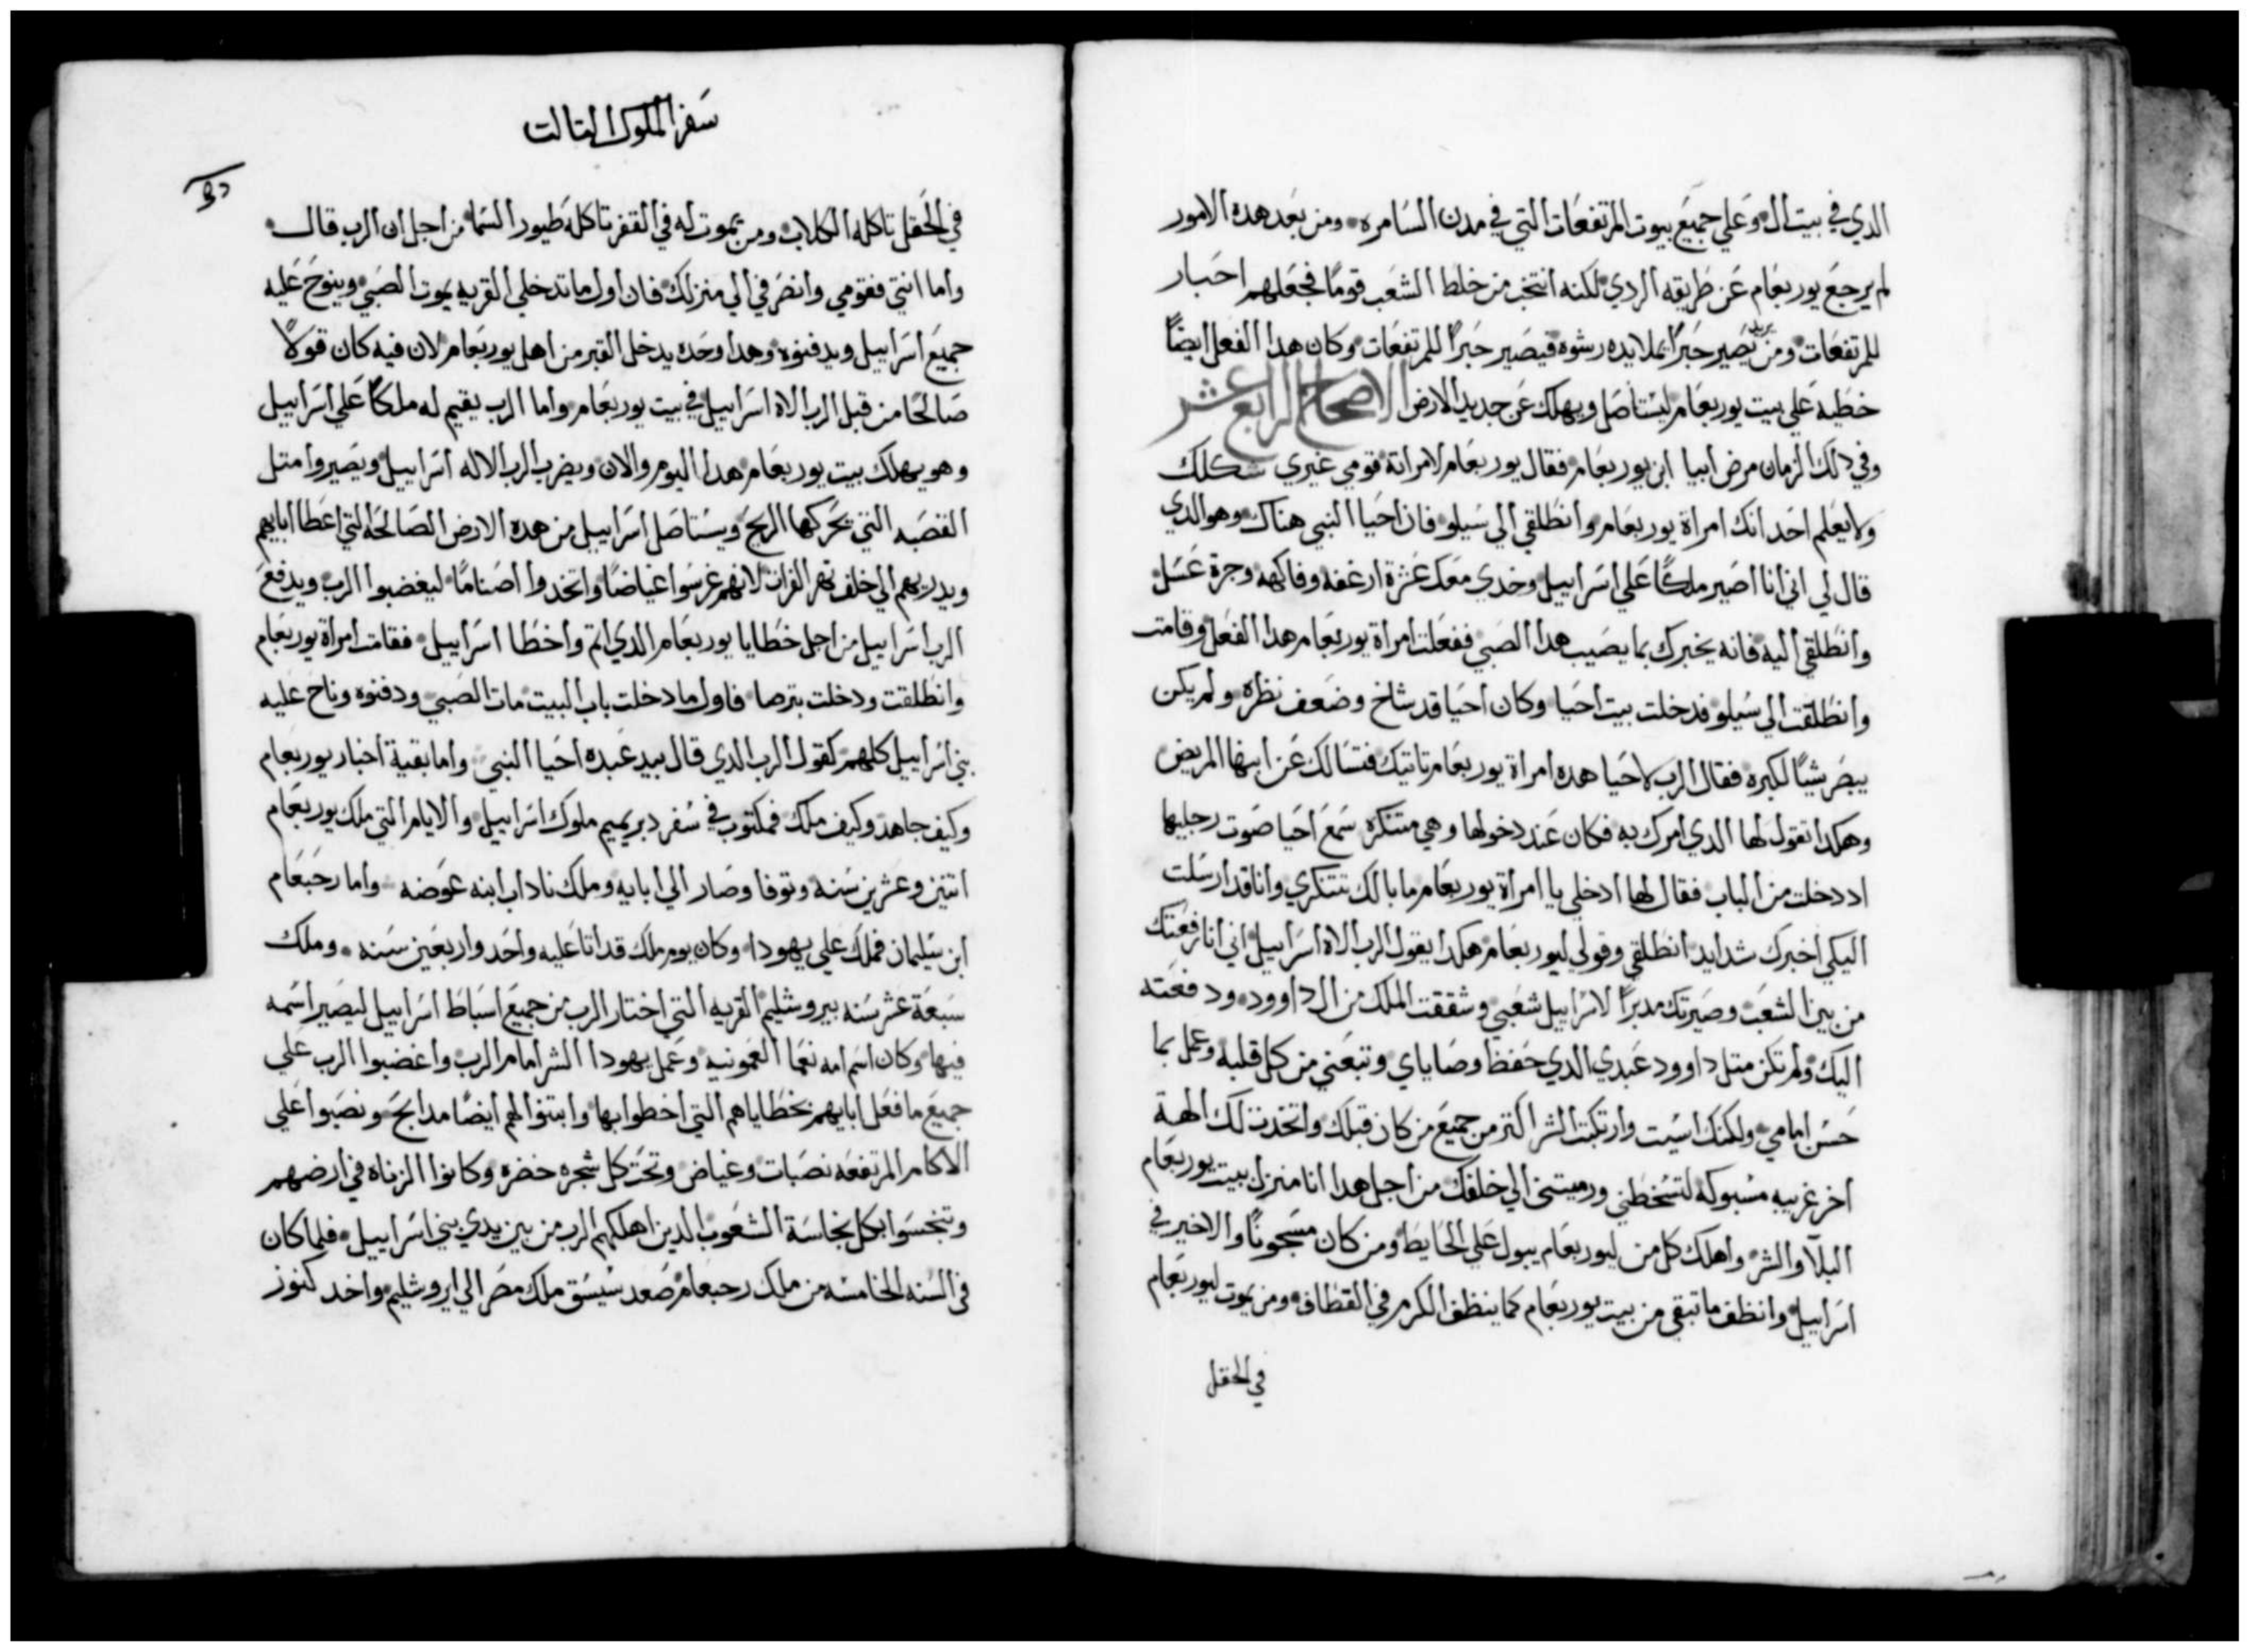 الدي في بيت ال وعلي جميع بيوت المرتفعات التي في مدن السامره ومن بعد هده الامور
لم يرجع يوربعام عن طريقه الردي لكنه انتخب من خلط الشعب قومًا فجعلهم احبار
للمرتفعات ومن يريد يصير حبرًا يملا يده رشوه فيصير حبرًا للمرتفعات وكان هدا الفعل ايضًا
خطيه علي بيت يوربعام ليستاصل ويهلك عن جديد الارض الاصحاح الرابع عشر
وفي دلك الزمان مرض ابيا ابن يوربعام فقال يوربعام لامراتة قومي غيري شكلك
ولا يعلم احد انك امراة يوربعام وانطلقي الي سيلو فان احيا النبي هناك وهو الدي
قال لي اني انا اصير ملكًا علي اسراييل وخدي معك عشرة ارغفه وفاكهه وجرة عسل
وانطلقي اليه فانه يخبرك بما يصيب هدا الصبي ففعلت امراة يوربعام هدا الفعل وقامت
وانطلقت الي سيلو فدخلت بيت احيا وكان احيا قد شاخ وضعف نظره ولم يكن
يبصر شيًا لكبره فقال الرب لاحيا هده امراة يوربعام تاتيك فتسالك عن ابنها المريض
وهكدا تقول لها الدي امرك به فكان عند دخولها وهي متنكره سمع احيا صوت رجليها
اد دخلت من الباب فقال لها ادخلي يا امراة يوربعام ما بالك تتنكري وانا قد ارسلت
اليكي اخبرك شدايد انطلقي وقولي ليوربعام هكدا يقول الرب الاه اسراييل اني انا رفعتك
من بين الشعب وصيرتك مدبرًا لاسراييل شعبي وشققت الملك من ال داوود ودفعته
اليك ولم تكن متل داوود عبدي الدي حفظ وصاياي وتبعني من كل قلبه وعمل بما
حسن امامي ولكنك اسيت وارتكبت الشر اكتر من جميع من كان قبلك واتخدت لك الهة
اخر غريبه مسبوكه لتسخطني ورميتني الي خلفك من اجل هدا انا منزل بيت يوربعام
البلا والشر واهلك كل من ليوربعام يبول علي الحايط ومن كان مسجونًا والاخير في
اسراييل وانظف ما تبقي من بيت يوربعام كما ينظف الكرم في القطاف ومن يموت ليوربعام
في الحقل
سفر الملوك التالت
في الحقل تاكله الكلاب ومن يموت له في القفر تاكله طيور السما من اجل ان الرب قال
واما انتي فقومي وانصرفي الي منزلك فان اول ما تدخلي القريه يموت الصبي وينوح عليه
جميع اسراييل ويدفنوه وهدا وحده يدخل القبر من اهل يوربعام لان فيه كان قولاً
صالحًا من قبل الرب الاه اسراييل في بيت يوربعام واما الرب يقيم له ملكًا علي اسراييل
وهو يهلك بيت يوربعام هدا اليوم والان ويضرب الرب الاله اسراييل ويصيروا متل
القصبه التي تحركها الريح ويستاصل اسراييل من هده الارض الصالحه التي اعطا ابايهم
ويدريهم الي خلف نهر الفرات لانهم غرسوا غياضًا واتخدوا اصنامًا ليغضبوا الرب ويدفع
الرب اسراييل من اجل خطايا يوربعام الدي اتم واخطا اسراييل فقامت امراة يوربعام
وانطلقت ودخلت بترصا فاول ما دخلت باب البيت مات الصبي ودفنوه وناح عليه
بني اسراييل كلهم كقول الرب الدي قال بيد عبده احيا النبي واما بقية اخبار يوربعام
وكيف جاهد وكيف ملك فمكتوب في سفر دبريميم ملوك اسراييل والايام التي ملك يوربعام
اتنين وعشرين سنه وتوفا وصار الي ابايه وملك ناداب ابنه عوضه واما رحبعام
ابن سليمان فملك علي يهودا وكان يوم ملك قد اتا عليه واحد واربعين سنه وملك
سبعة عشر سنه بيروشليم القريه التي اختار الرب من جميع اسباط اسراييل ليصير اسمه
فيها وكان اسم امه نعما العمونيه وعمل يهودا الشر امام الرب واغضبوا الرب علي
جميع ما فعل ابايهم بخطاياهم التي اخطوا بها وابتنوا لهم ايضًا مدابح ونصبوا علي
الاكام المرتفعه نصبات وغياض وتحت كل شجره خضره وكانوا الزناه في ارضهم
وتنجسوا بكل نجاسة الشعوب الدين اهلكهم الرب من بين يدي بني اسراييل فلما كان
في السنه الخامسه من ملك رحبعام صعد سيسق ملك مصر الي ايروشليم واخد كنوز